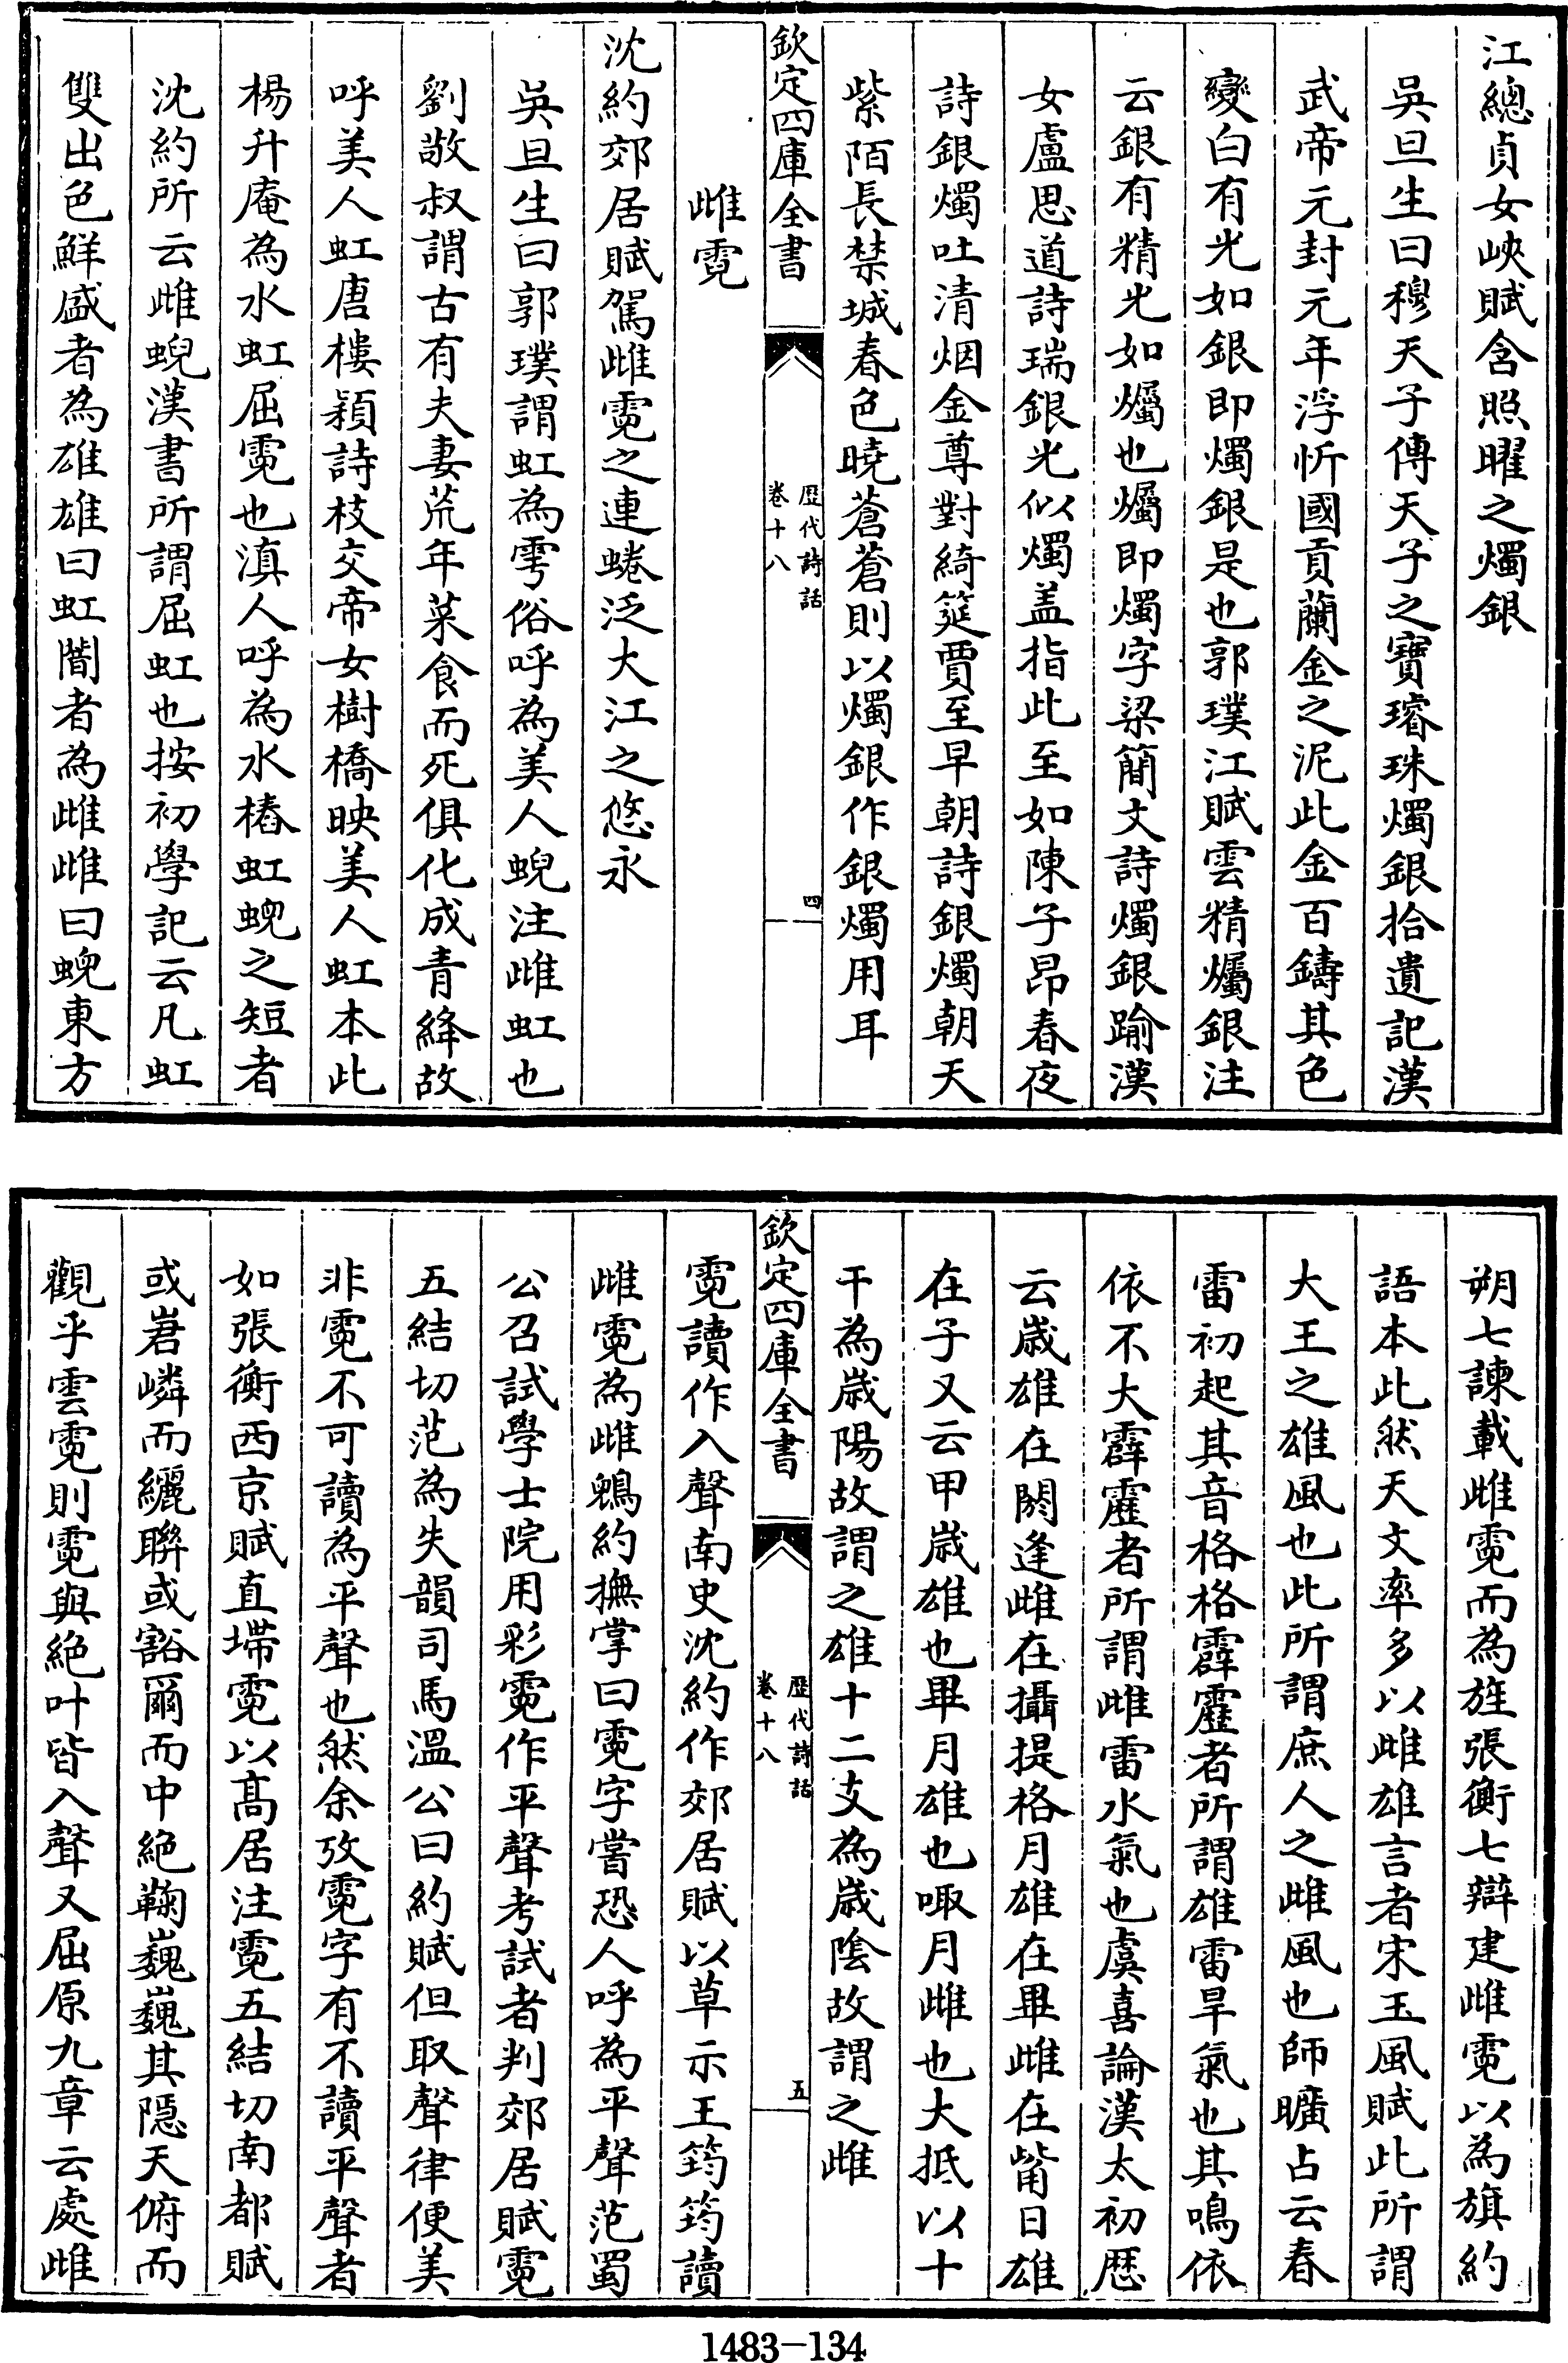 江總貞女峽賦含照曜之燭銀
吳旦生曰穆天子傳天子之寶璿珠燭銀拾遺記漢
武帝元封元年浮忻國貢蘭金之泥此金百鑄其色
變白有光如銀即燭銀是也郭璞江賦雲精爥銀注
云銀有精光如爥也爥即燭字梁簡文詩燭銀踰漢
女盧思道詩瑞銀光似燭盖指此至如陳子昂春夜
詩銀燭吐清烟金尊對綺筵賈至早朝詩銀燭朝天
紫陌長禁城春色曉蒼蒼則以燭銀作銀燭用耳
欽定四庫全書
歴代詩話
卷十八
四
雌霓
沈約郊居賦駕雌霓之連蜷泛大江之悠永
吳旦生曰郭璞謂虹為雩俗呼為美人蜺注雌虹也
劉敬叔謂古有夫妻荒年菜食而死俱化成青絳故
呼美人虹唐樓穎詩枝交帝女樹橋映美人虹本此
楊升庵為水虹屈霓也滇人呼為水樁虹蜺之短者
沈約所云雌蜺漢書所謂屈虹也按初學記云凡虹
雙出色鮮盛者為雄雄曰虹闇者為雌雌曰蜺東方
朔七諫載雌霓而為旌張衡七辯建雌霓以為旗約
語本此然天文率多以雌雄言者宋玉風賦此所謂
大王之雄風也此所謂庶人之雌風也師曠占云春
雷初起其音格格霹靂者所謂雄雷旱氣也其鳴依
依不大霹靂者所謂雌雷水氣也虞喜論漢太初歴
云歲雄在閼逢雌在攝提格月雄在畢雌在觜日雄
在子又云甲歲雄也畢月雄也陬月雌也大抵以十
干為歲陽故謂之雄十二支為歲陰故謂之雌
欽定四庫全書
歴代詩話
卷十八
五
霓讀作入聲南史沈約作郊居賦以草示王筠筠讀
雌霓為雌鶂約撫掌曰霓字嘗恐人呼為平聲范蜀
公召試學士院用彩霓作平聲考試者判郊居賦霓
五結切范為失韻司馬溫公曰約賦但取聲律便美
非霓不可讀為平聲也然余攷霓字有不讀平聲者
如張衡西京賦直墆霓以髙居注霓五結切南都賦
或峮嶙而纚聯或豁爾而中絶鞠巍巍其隱天俯而
觀乎雲霓則霓與絶叶皆入聲又屈原九章云處雌
1483-134